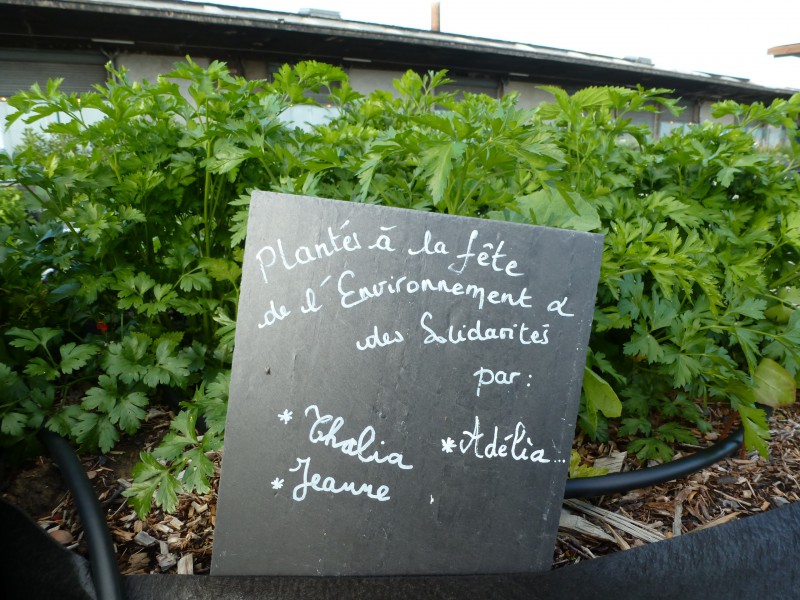 Plantés à la fête
de l'Environnement &
des Solidarités
par :
* Thalia
* Adélia...
* Jeanne